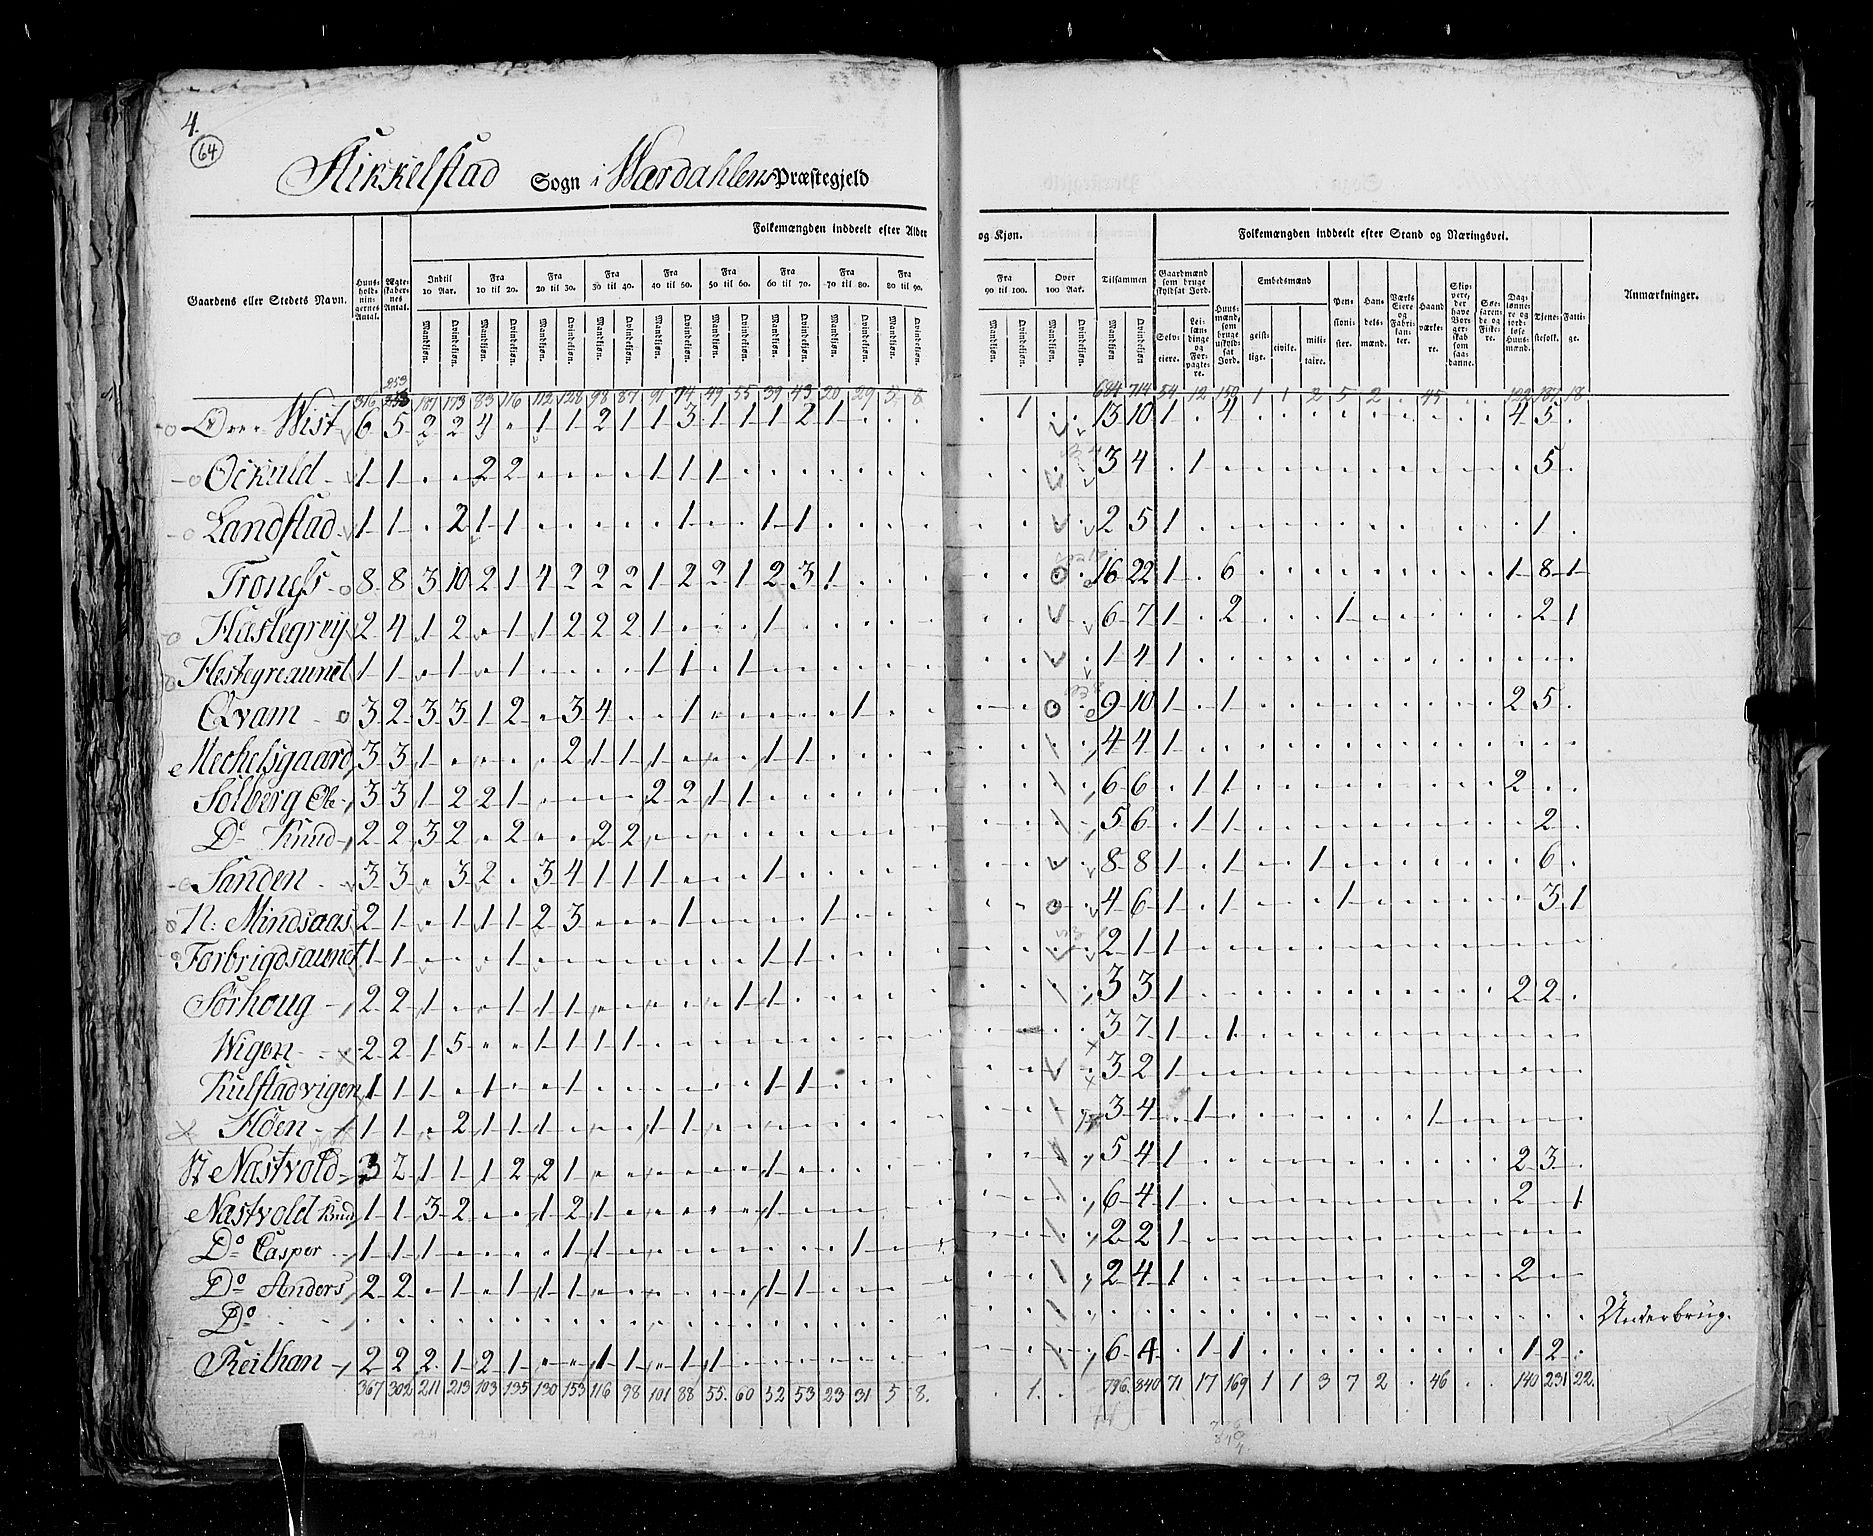 4.
64
Stikkelstad Sogn i Værdahlens Præstegjeld
Folkemængden inddeelt efter Alder og Kjøn. Folkemængden inddeelt efter Stand og Næringsvei.
Gaardens eller Stedets Navn. Huusholdningernes Antal. Ægteskabernes Antal. Indtil 10 Aar. Fra 10 til 20. Fra 20 til 30. Fra 30 til 40. Fra 40 til 50. Fra 50 til 60. Fra 60 til 70. Fra 70 til 80. Fra 80 til 90. Fra 90 til 100. Over 100 Aar. Tilsammen Gaardmænd som bruge skyldsat Jord. Huusmænd, som bruge uskyldsat Jord. Embedsmænd Pensionister. Handelsmænd. Værks Eiere og Fabrikanter. Haandværkere. Skippere, der have Borgerskab som saadanne. Søefarende og Fiskere. Daglønnere og jordløse Huusmænd. Tjenestefolk. Fattige. Anmærkninger.
Mandkjøn. Qvindekjøn. Mandkjøn. Qvindekjøn. Mandkjøn. Qvindekjøn. Mandkjøn. Qvindekjøn. Mandkjøn. Qvindekjøn. Mandkjøn. Qvindekjøn. Mandkjøn. Qvindekjøn. Mandkjøn. Qvindekjøn. Mandkjøn. Qvindekjøn. Mandkjøn. Qvindekjøn. Mandkjøn. Qvindekjøn. Mandkjøn. Qvindekjøn. Selveiere. Leilændinge og Forpagtere. geistlige. civile. militaire.
253
316 181 173 83 116 112 128 98 87 91 74 49 55 39 43 20 29 5 8 1 684 714 54 12 158 1 1 2 5 2 . 45 . . 122 187 18
Over Wist 6 5 2 2 4 . 1 1 2 1 1 3 1 1 1 2 1 . . . . . . . 13 10 1 . 4 . . . . . . . . . 4 5 .
Ockuld 1 1 . . 2 2 . . . . 1 1 1 . . . . . . . . . . . 3 4 . 1 . . . . . . . . . . . 5 .
Landstad 1 1 . 2 1 1 . . . . . 1 . . 1 1 . . . . . . . . 2 5 1 . . . . . . . . . . . . 1 .
Troness 8 8 3 10 2 1 4 2 2 2 1 2 2 1 2 3 1 . . . . . . . 16 22 1 . 6 . . . . . . . . . 1 8 1
Hæstegrey 2 4 1 2 . 1 1 2 2 2 1 . . . 1 . . . . . . . . . 6 7 1 . 2 . . . 1 . . . . . . 2 1
Hestegreaunet 1 1 . 1 . 1 . . . . 1 1 . 1 . . . . . . . . . . 1 4 1 . . . . . . . . . . . . . .
Qvam 3 2 3 3 1 2 . 3 4 . . 1 . . . . . 1 . . . . . . 9 10 1 . 1 . . . . . . . . . 2 5 .
Meckelsgaard 3 3 1 . . . . 2 1 1 1 . . . 1 1 . . . . . . . . 4 4 1 . . . . . . . . . . . . . .
Solberg Ole 3 3 1 2 2 1 . . . . 2 2 1 1 . . . . . . . . . . 6 6 . 1 1 . . . . . . . . . 2 . .
Do Knud 2 2 3 2 . 2 . . 2 2 . . . . . . . . . . . . . . 5 6 . 1 1 . . . . . . . . . . 2 .
Sanden 3 3 . 3 2 . 3 4 1 1 1 . . . 1 . . . . . . . . . 8 8 1 . 1 . . 1 . . . . . . . 6 .
N: Mindsaas 2 1 . 1 1 1 2 3 . . . 1 . . . . 1 . . . . . . . 4 6 1 . 1 . . . 1 . . . . . . 3 1
Forbrigdsaunet 1 1 . . . 1 . . . . . . . . 1 1 . . . . . . . . 2 1 1 . . . . . . . . . . . . . .
Sørhoug 2 2 1 . . 1 1 1 . . . . . 1 1 . . . . . . . . . 3 3 1 . . . . . . . . . . . 2 2 .
Wigen 2 2 1 5 . . 1 1 1 1 . . . . . . . . . . . . . . 3 7 1 . 1 . . . . . . . . . . . .
Kulstadvigen 1 1 1 . 1 . . 1 . . . . . . 1 1 . . . . . . . . 3 2 1 . . . . . . . . . . . . . .
Höen 1 1 . 2 1 1 1 . . . 1 1 . . . . . . . . . . . . 3 4 . 1 . . . . . . . 1 . . . . .
St Næstvold 3 2 1 1 1 2 2 1 . . . . . . 1 . . . . . . . . . 5 4 1 . . . . . . . . . . . 2 3 .
Næstvold Knud 1 1 3 2 . . 1 2 1 . . . . . 1 . . . . . . . . . 6 4 1 . . . . . . . . . . . 2 . 1
Do Casper 1 1 1 . . . . 1 1 . . . . . . . . 1 . . . . . . 2 2 1 . . . . . . . . . . . . . .
Do Anders 2 2 . 1 . 1 1 1 . . . . . . 1 1 . . . . . . . . 2 4 1 . . . . . . . . . . . 2 . .
Do . . . . . . . . . . . . . . . . . . . . . . . . . . . . . . . . . . . . . . . . . Underbrug.
Reithan 2 2 2 1 2 1 . . 1 1 . 1 1 . . . . . . . . . . . 6 4 . 1 1 . . . . . . . . . 1 2 .
367 302 211 213 103 135 130 153 116 98 101 88 55 60 52 53 23 31 5 8 . 1 . . 796 840 71 17 169 1 1 3 7 2 . 46 . . 140 231 22